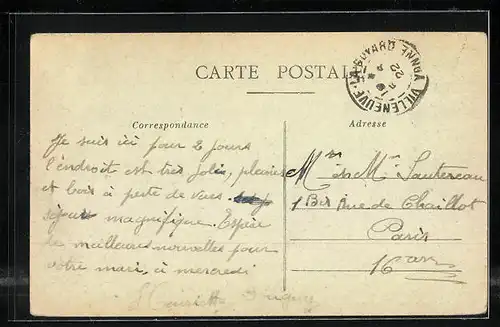 CARTE POSTALE
VILLENEUVE-LA-GUYARD YONNE
22
Correspondance
Adresse
Je suis ici pour 2 jours
l'endroit est très jolis, plaines
et bois à perte de vues
séjour magnifique. Espère
de meilleures nouvelles pour
votre mari, à mercredi
Mme Sautereau
1 Bis Rue de Chaillot
Paris
16 arr